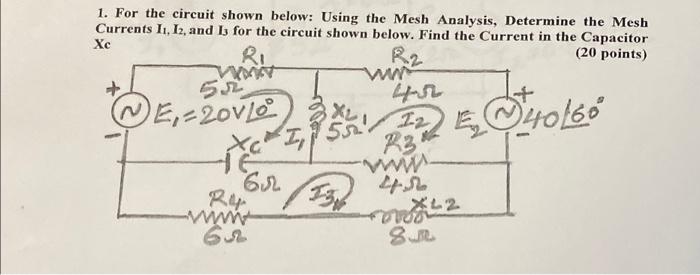 1. For the circuit shown below: Using the Mesh Analysis, Determine the Mesh
Currents I₁, I₂, and I₃ for the circuit shown below. Find the Current in the Capacitor
Xc
(20 points)
R1
R2
5Ω
4Ω
+
+
E₁=20V∠0°
XL1
5Ω
I1
I2
E2
40∠60°
-
-
Xc
R3
6Ω
4Ω
R4
I3
XL2
6Ω
8Ω